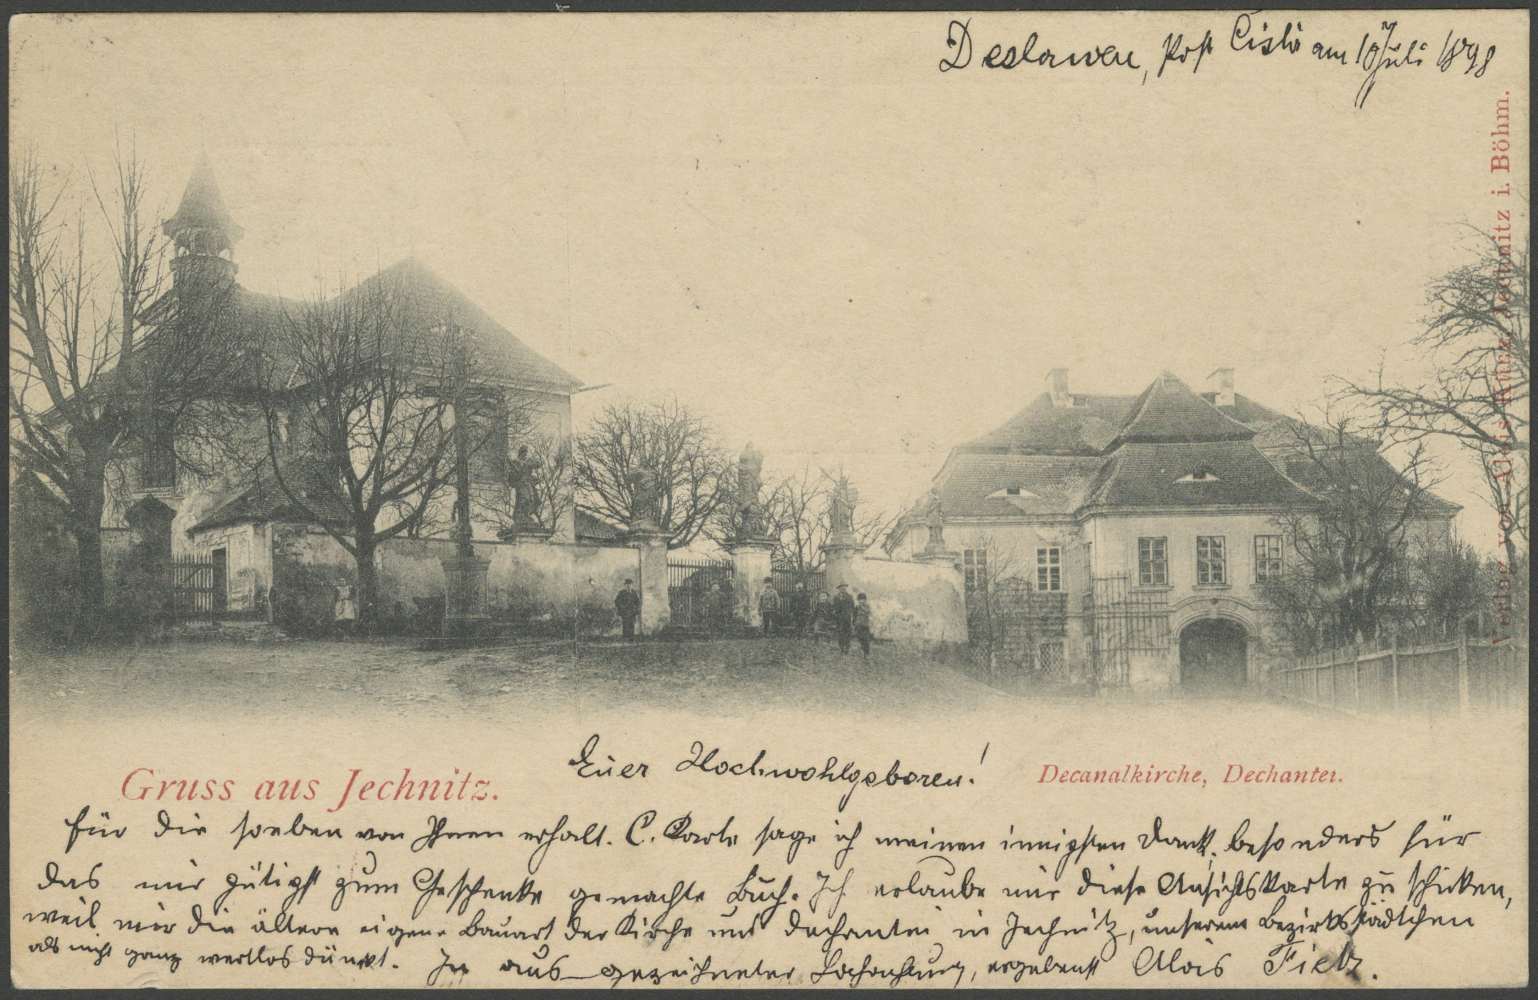 Deslawen, Post Cistá am 10 Juli 1898
Verlag von Alois Kunz, Jechnitz i. Böhm.
Euer Hochwohlgeboren!
Gruss aus Jechnitz.
Decanalkirche, Dechantei.
für die soeben von Ihnen erhalt. C. Karte sage ich meinen innigsten Dank, besonders für
das mir gütigst zum Geschenke gemachte Buch. Ich erlaube mir diese Ansichtskarte zu schicken,
weil mir die ältere eigene Bauart der Kirche und Dechantei in Jechnitz, unserem Bezirksstädtchen
als nicht ganz wertlos dünkt. In aus-gezeichneter Hochachtung, ergebenst Alois Fietz.